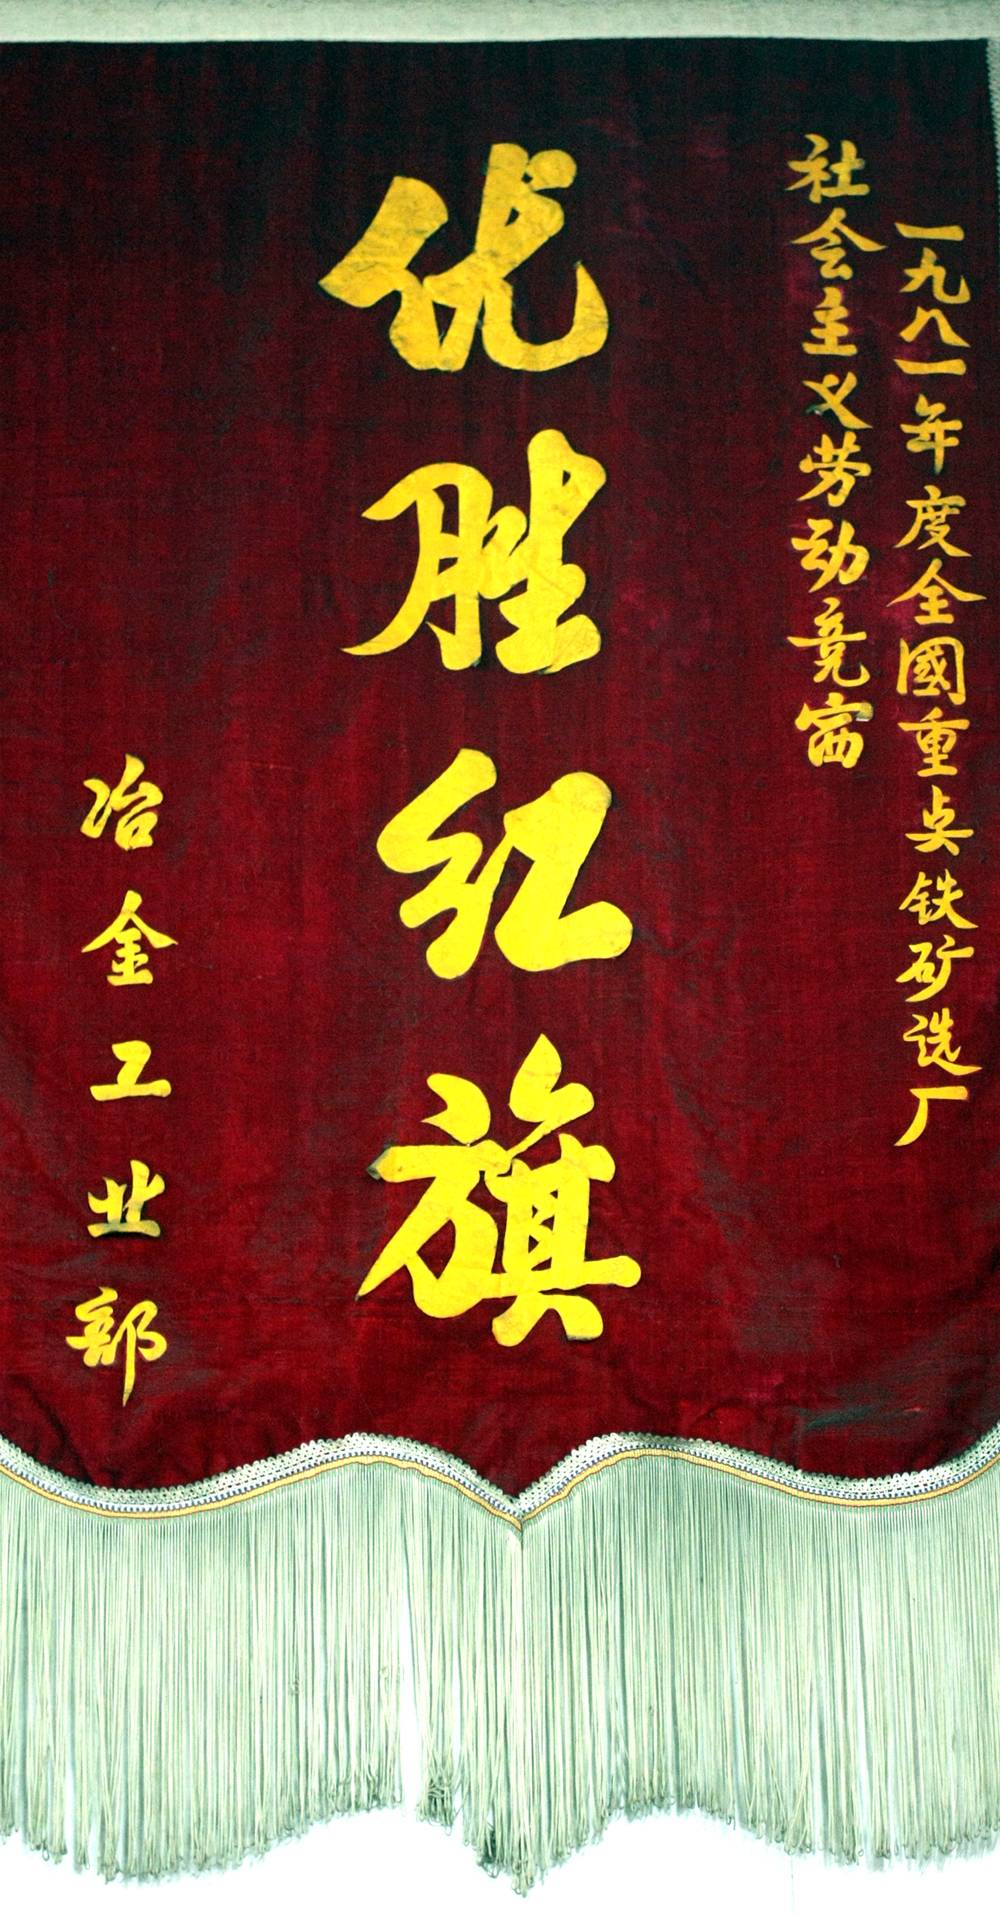 一九八一年度全國重点铁矿选厂
社会主义劳动竞赛
优胜红旗
冶金工业部